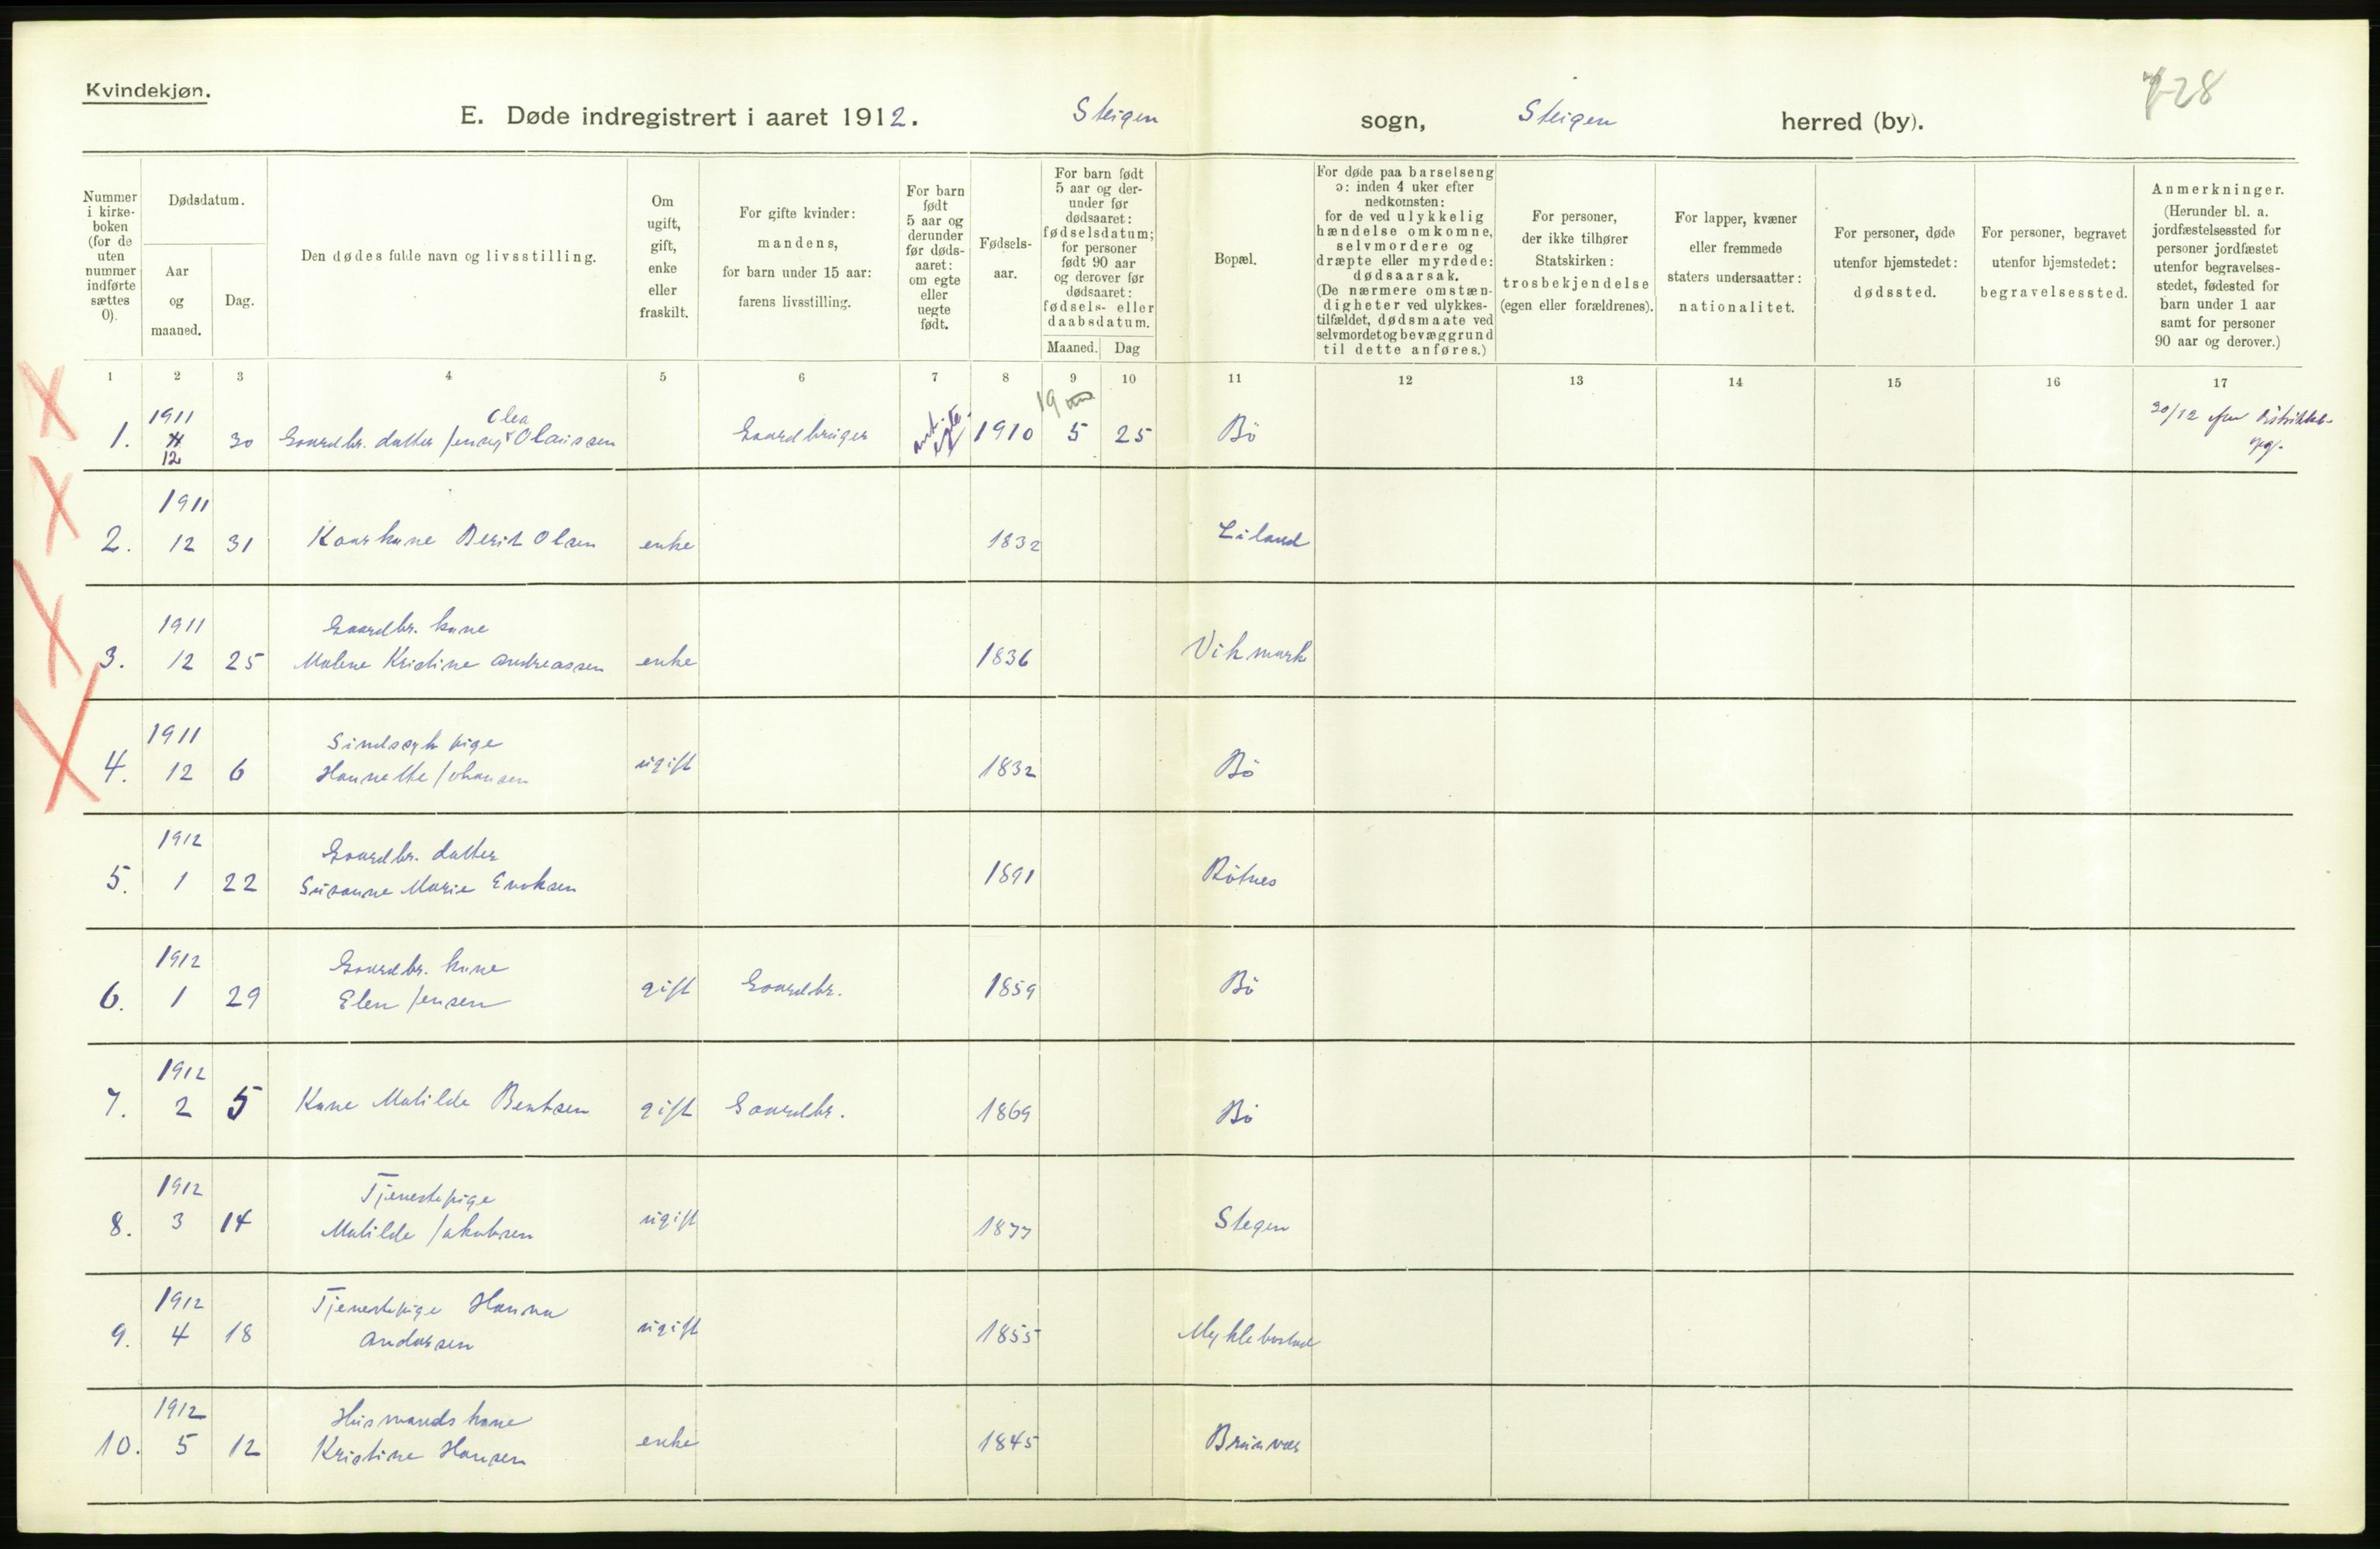 Kvindekjøn.
E. Døde indregistrert i aaret 1912. Steigen sogn, Steigen herred (by). 28
Nummer i kirke-boken (for de uten nummer indførte sættes 0).
Dødsdatum.
Aar og maaned.
Dag.
Den dødes fulde navn og livsstilling.
Om ugift, gift, enke eller fraskilt.
For gifte kvinder: mandens, for barn under 15 aar: farens livsstilling.
For barn født 5 aar og derunder før døds-aaret: om egte eller uegte født.
Fødsels-aar.
For barn født 5 aar og der-under før dødsaaret: fødselsdatum; for personer født 90 aar og derover før dødsaaret: fødsels- eller daabsdatum.
Maaned. Dag
Bopæl.
For døde paa barselseng ɔ: inden 4 uker efter nedkomsten: for de ved ulykkelig hændelse omkomne, selvmordere og dræpte eller myrdede: dødsaarsak. (De nærmere omstæn-digheter ved ulykkes-tilfældet, dødsmaate ved selvmordet og bevæggrund til dette anføres.)
For personer, der ikke tilhører Statskirken: trosbekjendelse (egen eller forældrenes).
For lapper, kvæner eller fremmede staters undersaatter: nationalitet.
For personer, døde utenfor hjemstedet: dødssted.
For personer, begravet utenfor hjemstedet: begravelsessted.
Anmerkninger. (Herunder bl. a. jordfæstelsessted for personer jordfæstet utenfor begravelses-stedet, fødested for barn under 1 aar samt for personer 90 aar og derover.)
1 2 3 4 5 6 7 8 9 10 11 12 13 14 15 16 17
1911 Olea 19
1. 12 30 Gaardbr. datter Jensy Olaissen Gaardbruger ant. egte. 1910 5 25 Bö 30/12 efter distriktsl. opg.
1911
2. 12 31 Kaarkone Berit Olsen enke 1832 Leiland
1911 Gaardbr. kone
3. 12 25 Malene Kristine Andreassen enke 1836 Vikmark
1911 Sindssyk pige
4. 12 6 Hannette Johansen ugift 1832 Bö
1912 Gaardbr. datter
5. 1 22 Susanne Marie Enoksen 1891 Bötnes
1912 Gaardbr. kone
6. 1 29 Elen Jensen gift Gaardbr. 1859 Bö
1912
7. 2 5 Kone Matilde Bentsen gift Gaardbr. 1869 Bö
1912 Tjenestepige
8. 3 14 Matilde Jakobsen ugift 1877 Stegen
1912 Tjenestepige Hanna
9. 4 18 Andersen ugift 1855 Myklebostad
1912 Husmands kone
10. 5 12 Kristine Hansen enke 1845 Brunvær